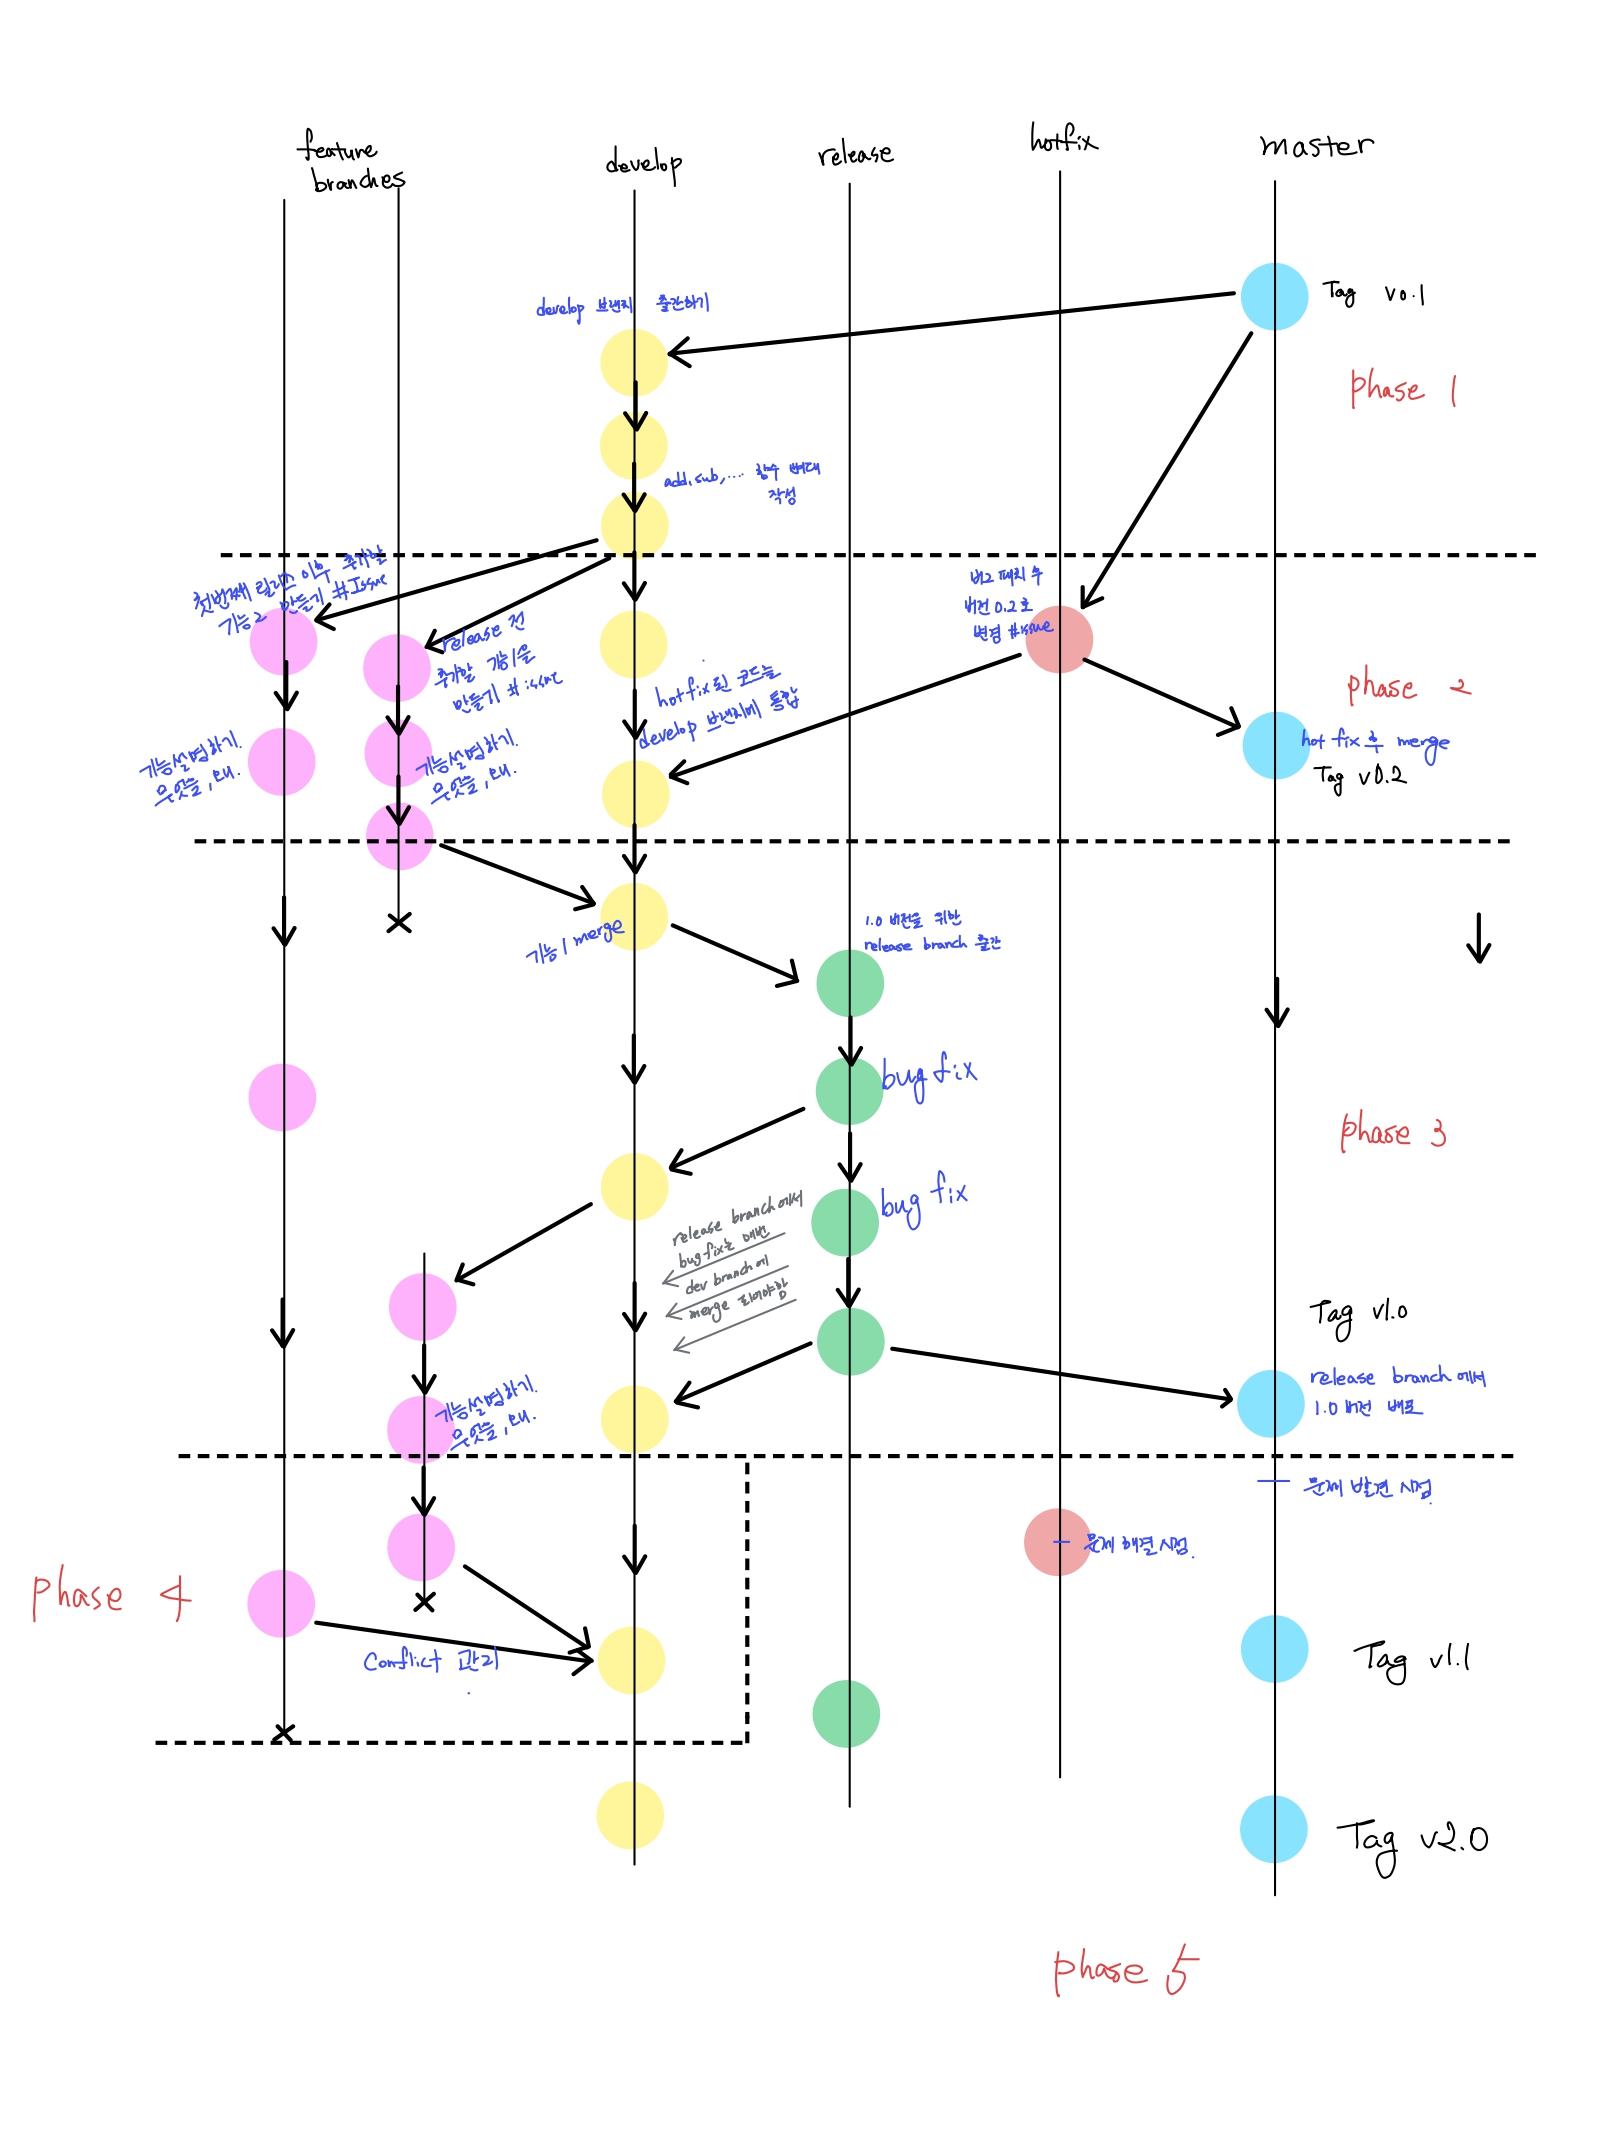 feature
branches
develop
release
hotfix
master
develop 브랜치 출간하기
Tag v0.1
phase 1
add, sub, .... 함수 뼈대
작성
첫번째 릴리즈 이후 추가할
기능2 만들기 #Issue
release 전
추가할 기능1을
만들기 #issue
버그 패치 후
버전 0.2로
변경 #issue
hotfix된 코드를
develop 브랜치에 통합
phase 2
hot fix 후 merge
Tag v0.2
기능설명하기.
무엇을, 왜.
기능설명하기.
무엇을, 왜.
기능1 merge
1.0 버전을 위한
release branch 출간
bug fix
phase 3
bug fix
release branch에서
bugfix는 매번
dev branch에
merge 되어야함
Tag v1.0
release branch에서
1.0 버전 배포
기능설명하기.
무엇을, 왜.
문제 발견 시점.
문제 해결 시점.
phase 4
Conflict 관리
Tag v1.1
Tag v2.0
phase 5